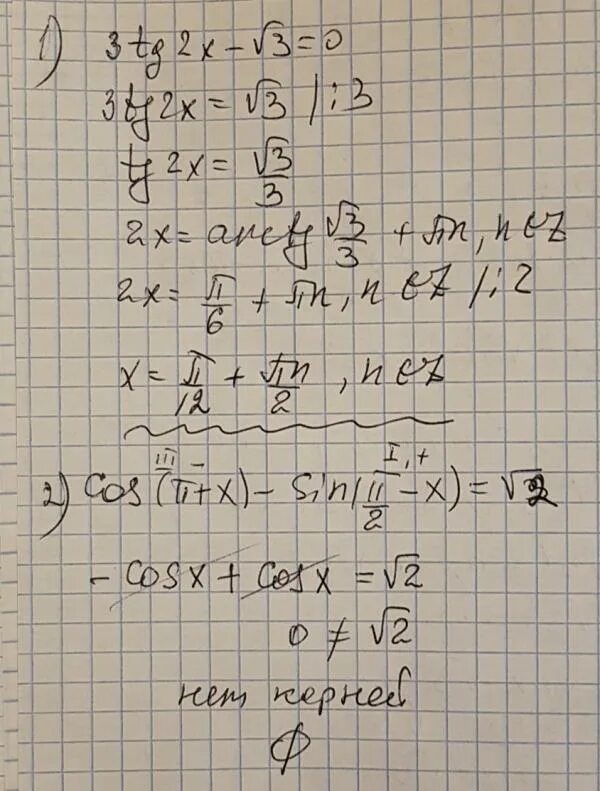 1) 3 tg 2x - √3 = 0
3 tg 2x = √3 / : 3
tg 2x = √3/3
2x = arctg √3/3 + πn, n ∈ Z
2x = π/6 + πn, n ∈ Z / : 2
x = π/12 + πn/2, n ∈ Z
III - I, +
2) cos (π + x) - sin (π/2 - x) = √2
- cos x + cos x = √2
0 ≠ √2
нет корней
∅